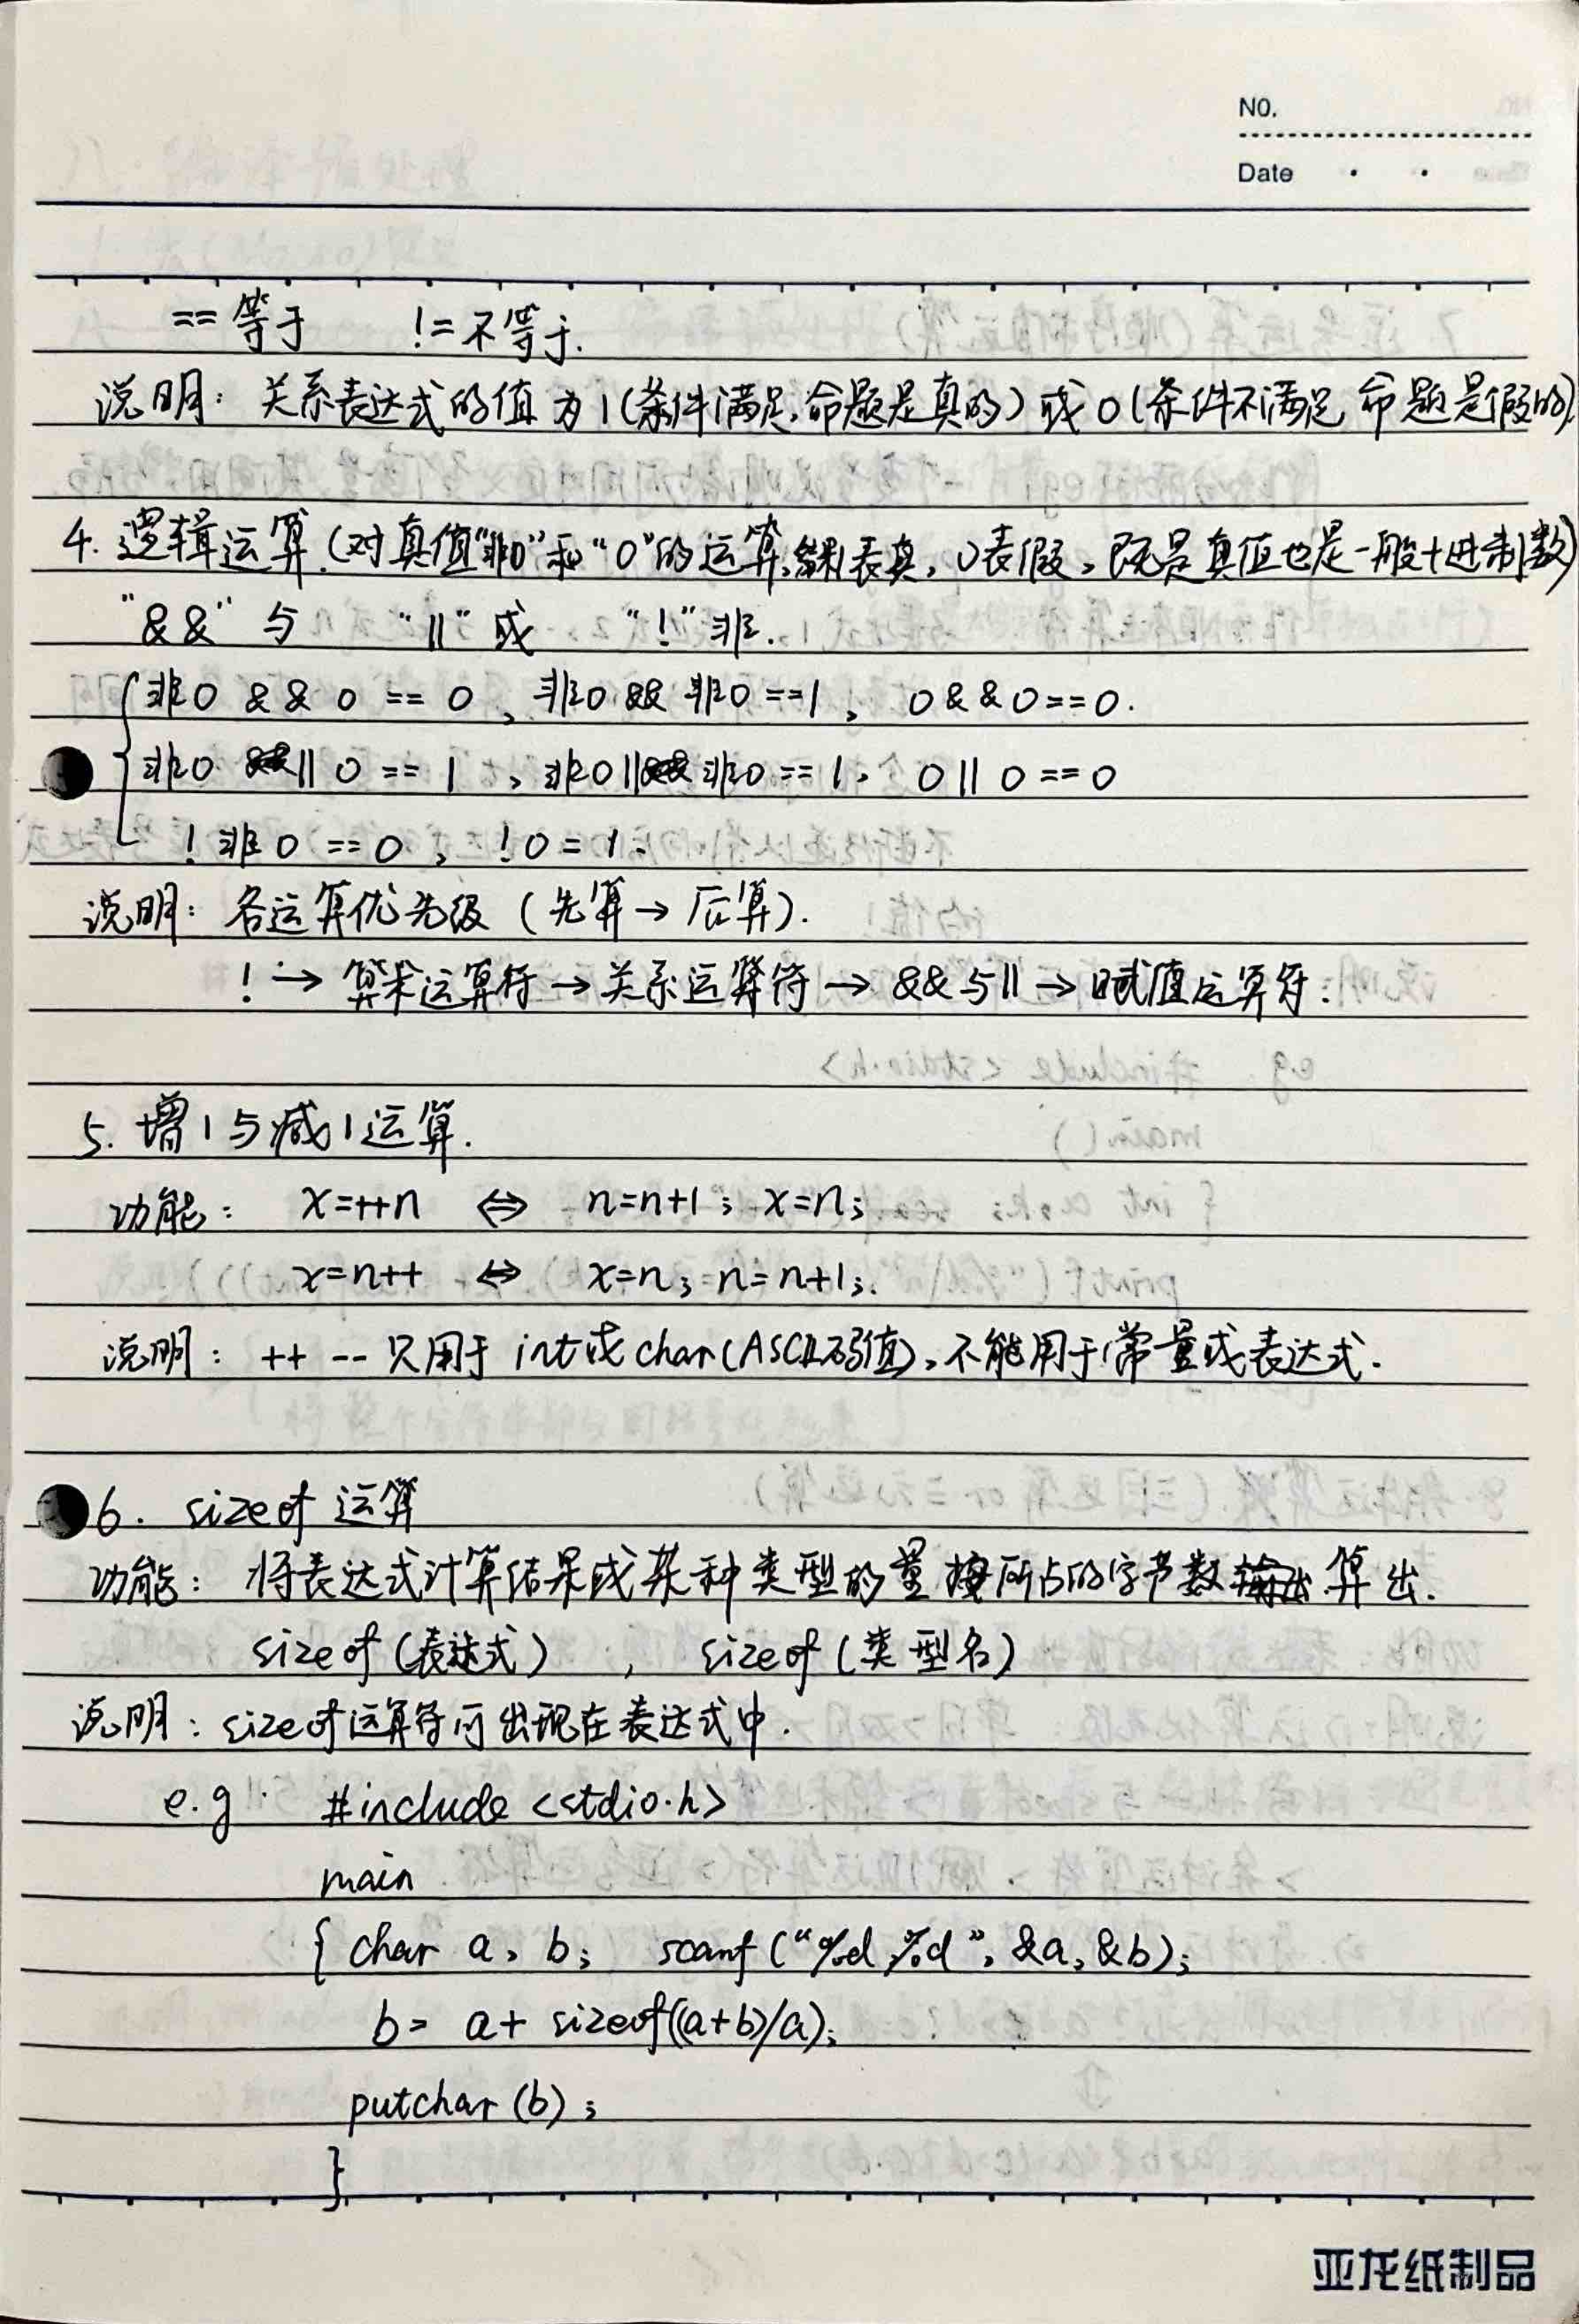 NO.
Date
== 等于 != 不等于.
说明: 关系表达式的值为1(条件满足,命题是真的)或0(条件不满足,命题是假的)
4. 逻辑运算.(对真值"非0"和"0"的运算,结果1表真,0表假,既是真值也是一般十进制数)
"&&" 与 "||" 或 "!" 非.
非0 && 0 == 0, 非0 && 非0 ==1, 0&&0==0.
非0 || 0 == 1, 非0 || 非0 == 1, 0 || 0 == 0
! 非0 == 0, !0 = 1.
说明: 各运算优先级 (先算→后算).
! → 算术运算符 → 关系运算符 → && 与 || → 赋值运算符.
5. 增1与减1运算.
功能: x=++n ⇔ n=n+1; x=n;
x=n++ ⇔ x=n; n=n+1;.
说明: ++ -- 只用于 int或char(ASCII码值),不能用于常量或表达式.
6. sizeof 运算
功能: 将表达式计算结果或某种类型的量所占的字节数算出.
sizeof(表达式), sizeof(类型名)
说明: sizeof运算符可出现在表达式中.
e.g #include <stdio.h>
main
{ char a, b; scanf("%d,%d", &a, &b);
b= a+ sizeof((a+b)/a);
putchar(b);
}
亚龙纸制品